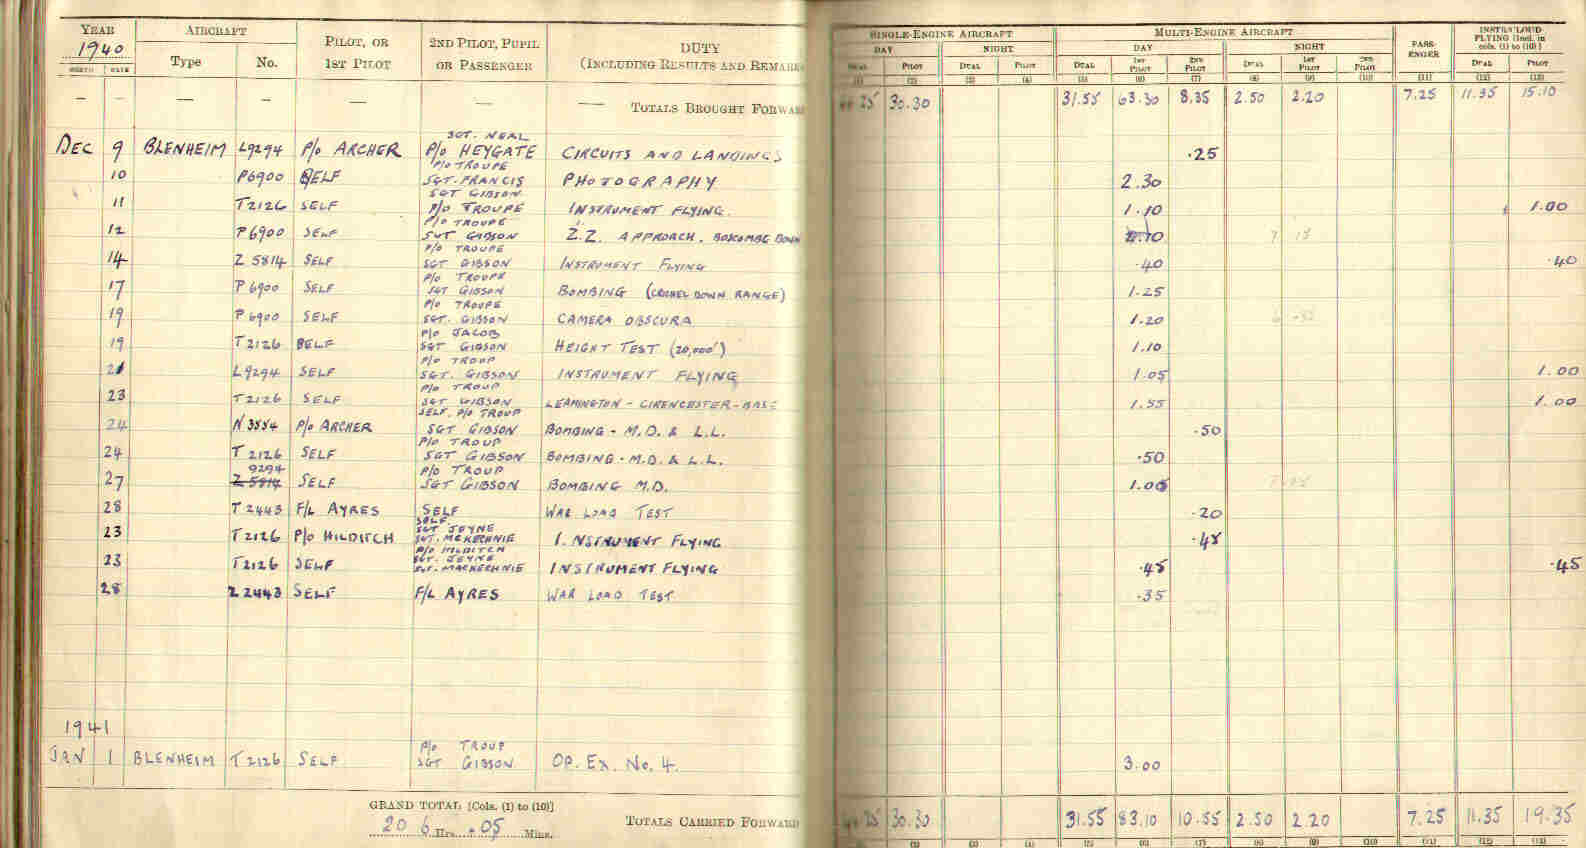 YEAR AIRCRAFT PILOT, OR 2ND PILOT, PUPIL DUTY SINGLE-ENGINE AIRCRAFT MULTI-ENGINE AIRCRAFT PASS- INSTR/CLOUD
1940 Type No. 1ST PILOT OR PASSENGER (INCLUDING RESULTS AND REMARKS DAY NIGHT DAY NIGHT ENGER FLYING [Incl. in cols. (1) to (10)]
MONTH DATE DUAL PILOT DUAL PILOT DUAL 1ST PILOT 2ND PILOT DUAL 1ST PILOT 2ND PILOT DUAL PILOT
(1) (2) (3) (4) (5) (6) (7) (8) (9) (10) (11) (12) (13)
— — — — — — — TOTALS BROUGHT FORWARD 25 30.30 31.55 63.30 8.35 2.50 2.20 7.25 11.35 15.10
SGT. NEAL
DEC 9 BLENHEIM L9294 P/O ARCHER P/O HEYGATE CIRCUITS AND LANDINGS .25
P/O TROUPE
10 P6900 SELF SGT. FRANCIS PHOTOGRAPHY 2.30
SGT GIBSON
11 T2126 SELF P/O TROUPE INSTRUMENT FLYING. 1.10 1.00
P/O TROUPE
12 P6900 SELF SGT GIBSON Z.Z. APPROACH. BOSCOMBE DOWN .10
P/O TROUPE
14 Z 5814 SELF SGT GIBSON INSTRUMENT FLYING .40 .40
P/O TROUPE
17 P 6900 SELF SGT GIBSON BOMBING (CRICHEL DOWN RANGE) 1.25
P/O TROUPE
19 P 6900 SELF SGT. GIBSON CAMERA OBSCURA 1.20
P/O JACOB
19 T2126 SELF SGT GIBSON HEIGHT TEST (20,000') 1.10
P/O TROUP
21 L9294 SELF SGT. GIBSON INSTRUMENT FLYING 1.05 1.00
P/O TROUP
23 T2126 SELF SGT GIBSON LEAMINGTON - CIRENCESTER - BASE 1.55 1.00
SELF. P/O TROUP
24 N 3554 P/O ARCHER SGT GIBSON BOMBING - M.D. & L.L. .50
P/O TROUP
24 T 2126 SELF SGT GIBSON BOMBING - M.D. & L.L. .50
9294 P/O TROUP
27 Z 5814 SELF SGT GIBSON BOMBING M.D. 1.00
28 T 2443 F/L AYRES SELF WAR LOAD TEST .20
SELF
SGT JEYNE
23 T2126 P/O HILDITCH SGT. MCKECHNIE INSTRUMENT FLYING .45
P/O HILDITCH
SGT. JEYNE
23 T2126 SELF SGT. MACKECHNIE INSTRUMENT FLYING .45 .45
28 Z 2443 SELF F/L AYRES WAR LOAD TEST .35
1941
P/O TROUP
JAN 1 BLENHEIM T2126 SELF SGT GIBSON OP. EX. No. 4. 3.00
GRAND TOTAL [Cols. (1) to (10)]
206 Hrs. .05 Mins. TOTALS CARRIED FORWARD 25 30.30 31.55 83.10 10.55 2.50 2.20 7.25 11.35 19.35
(2) (3) (4) (5) (6) (7) (8) (9) (10) (11) (12) (13)